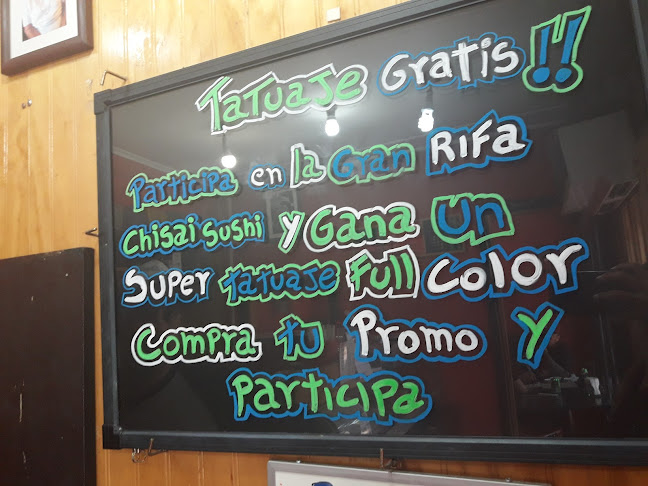 Tatuaje Gratis!!
Participa en la Gran Rifa
Chisai Sushi y Gana un
Super tatuaje Full Color
Compra tu Promo y
Participa